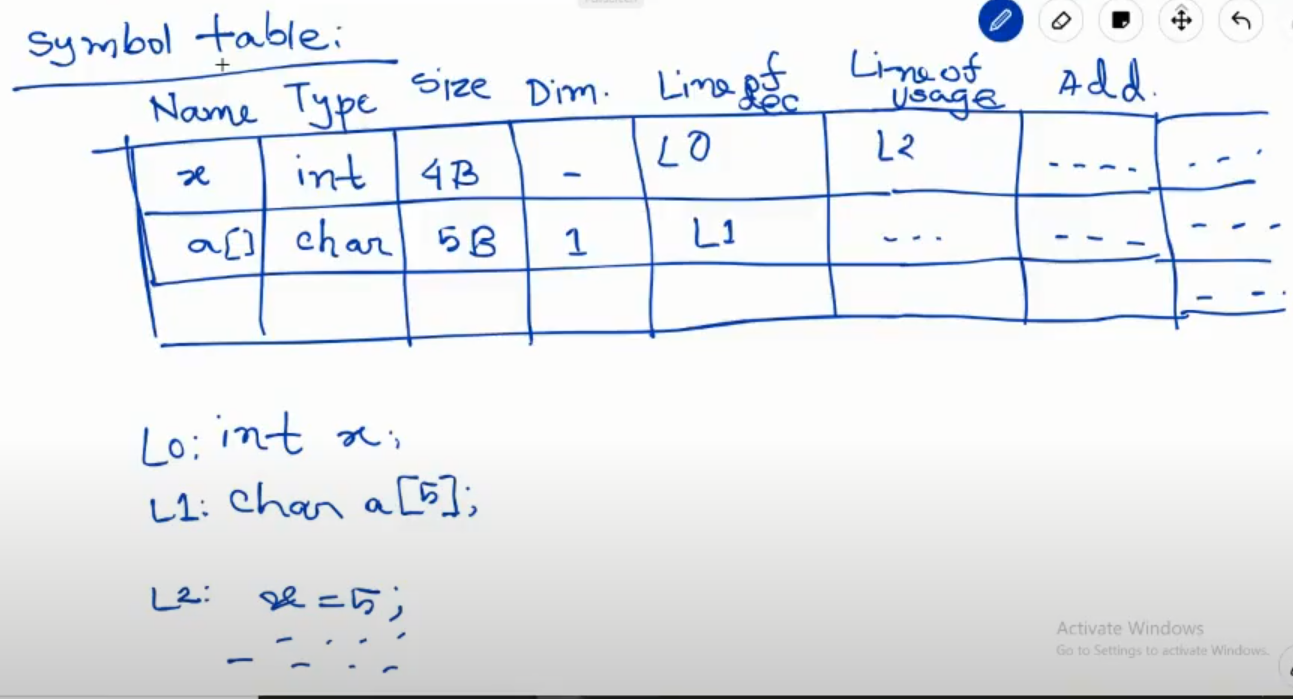 Symbol table:
Name Type Size Dim. Line of dec Line of usage Add.
x int 4B - L0 L2 ---- ---
a[] char 5B 1 L1 --- --- ---
L0: int x;
L1: char a[5];
L2: x = 5;
Activate Windows
Go to Settings to activate Windows.